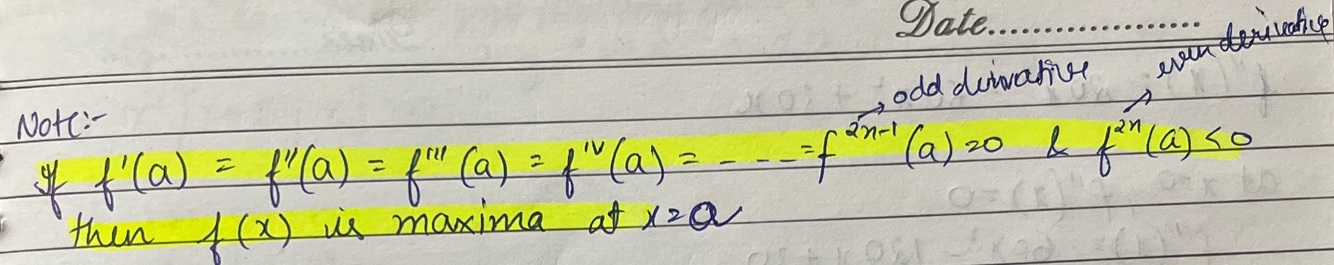 Date....................
→ odd derivative → even derivative
Note:-
If f'(a) = f''(a) = f'''(a) = f'ᵛ(a) = - - - - = f²ⁿ⁻¹(a) = 0 & f²ⁿ(a) < 0
then f(x) is maxima at x = a